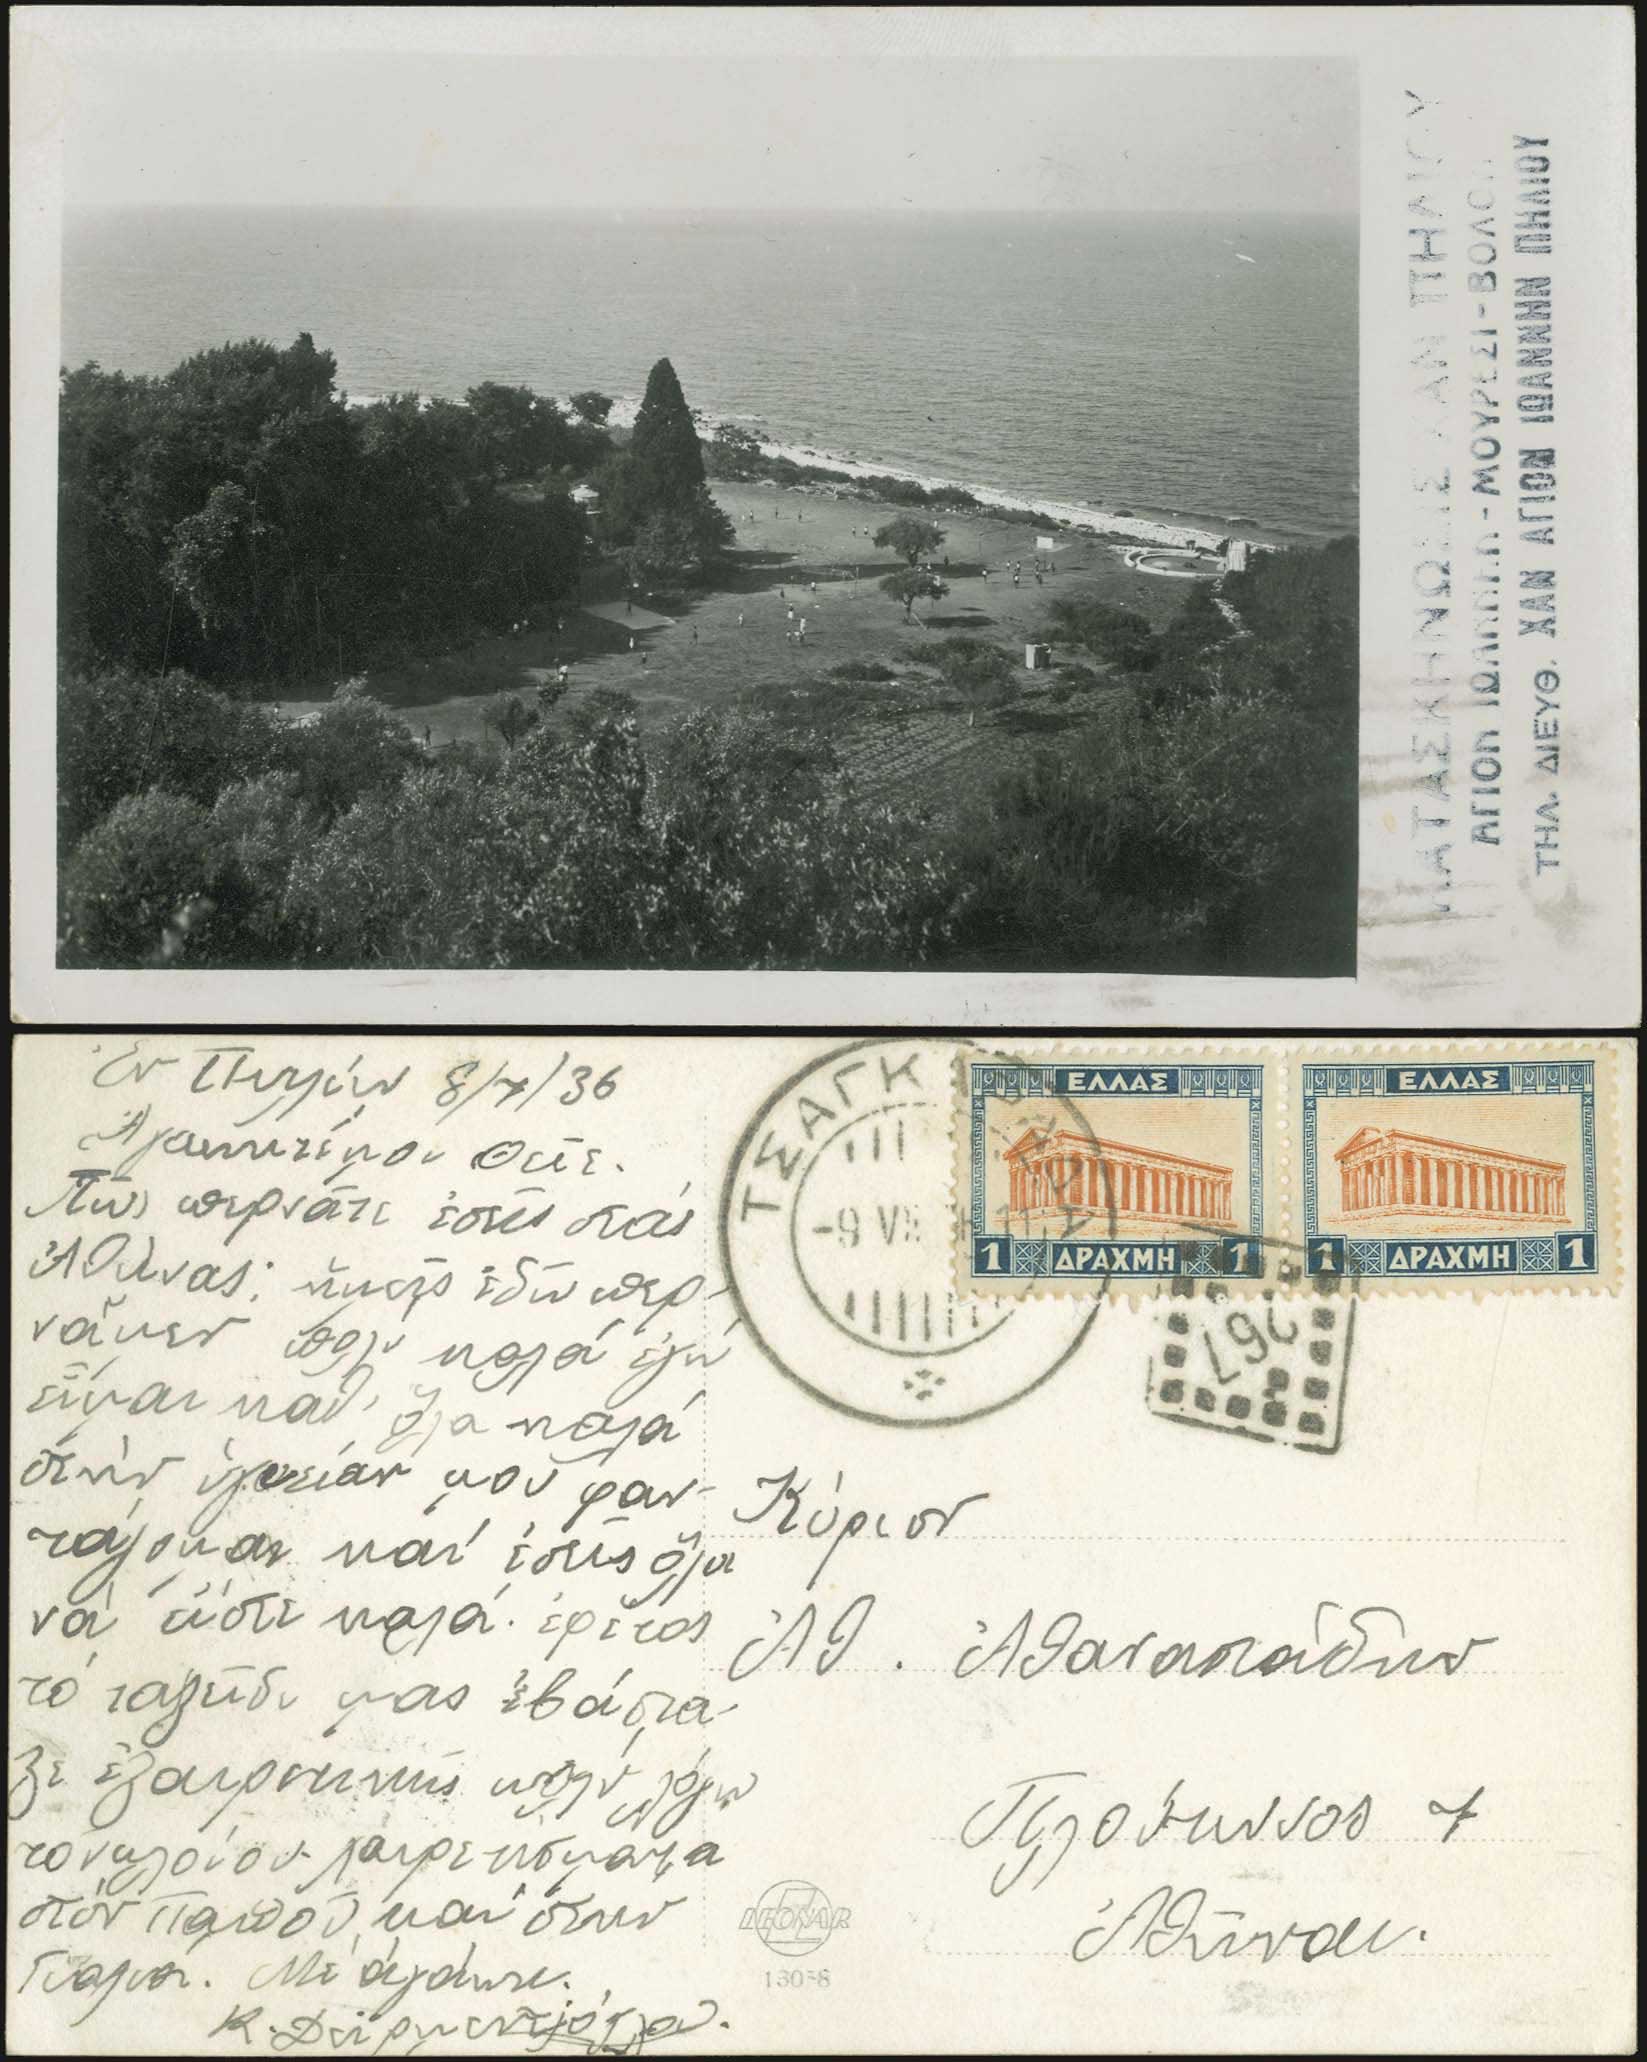 ΚΑΤΑΣΚΗΝΩΣΙΣ ΧΑΝ ΠΗΛΙΟΥ
ΑΓΙΟΝ ΙΩΑΝΝΗΝ - ΜΟΥΡΕΣΙ - ΒΟΛΟΝ
ΤΗΛ. ΔΙΕΥΘ. ΧΑΝ ΑΓΙΟΝ ΙΩΑΝΝΗΝ ΠΗΛΙΟΥ
Ἐν Πηλίῳ 8/7/36
Ἀγαπητέ μοι Θεῖε.
Πῶς περνᾶτε ἐσεῖς στάς
Ἀθήνας; ἡμεῖς ἐδῶ περ-
νᾶμεν πολύ καλά ἐγώ
εἶμαι καθ' ὅλα καλά
στήν ὑγείαν μου φαν-
τάζομαι καί ἐσεῖς ὅλα
νά εἶστε καλά. ἐφέτος
τό ταξεῖδι μας ἐβάστα-
ξε ἐξαιρετικῶς πολύ λόγῳ
τοῦ πλοίου χαιρετίσματα
στόν Παπποῦ καί στήν
Γιαγιά. Μέ ἀγάπη.
Κ.
ΤΣΑΓΚΑΡΑΔΑ
-9 VII 36
ΕΛΛΑΣ
1 ΔΡΑΧΜΗ 1
ΕΛΛΑΣ
1 ΔΡΑΧΜΗ 1
267
Κύριον
Ἀθ. Ἀθανασιάδην
7
Ἀθῆναι.
LEONAR